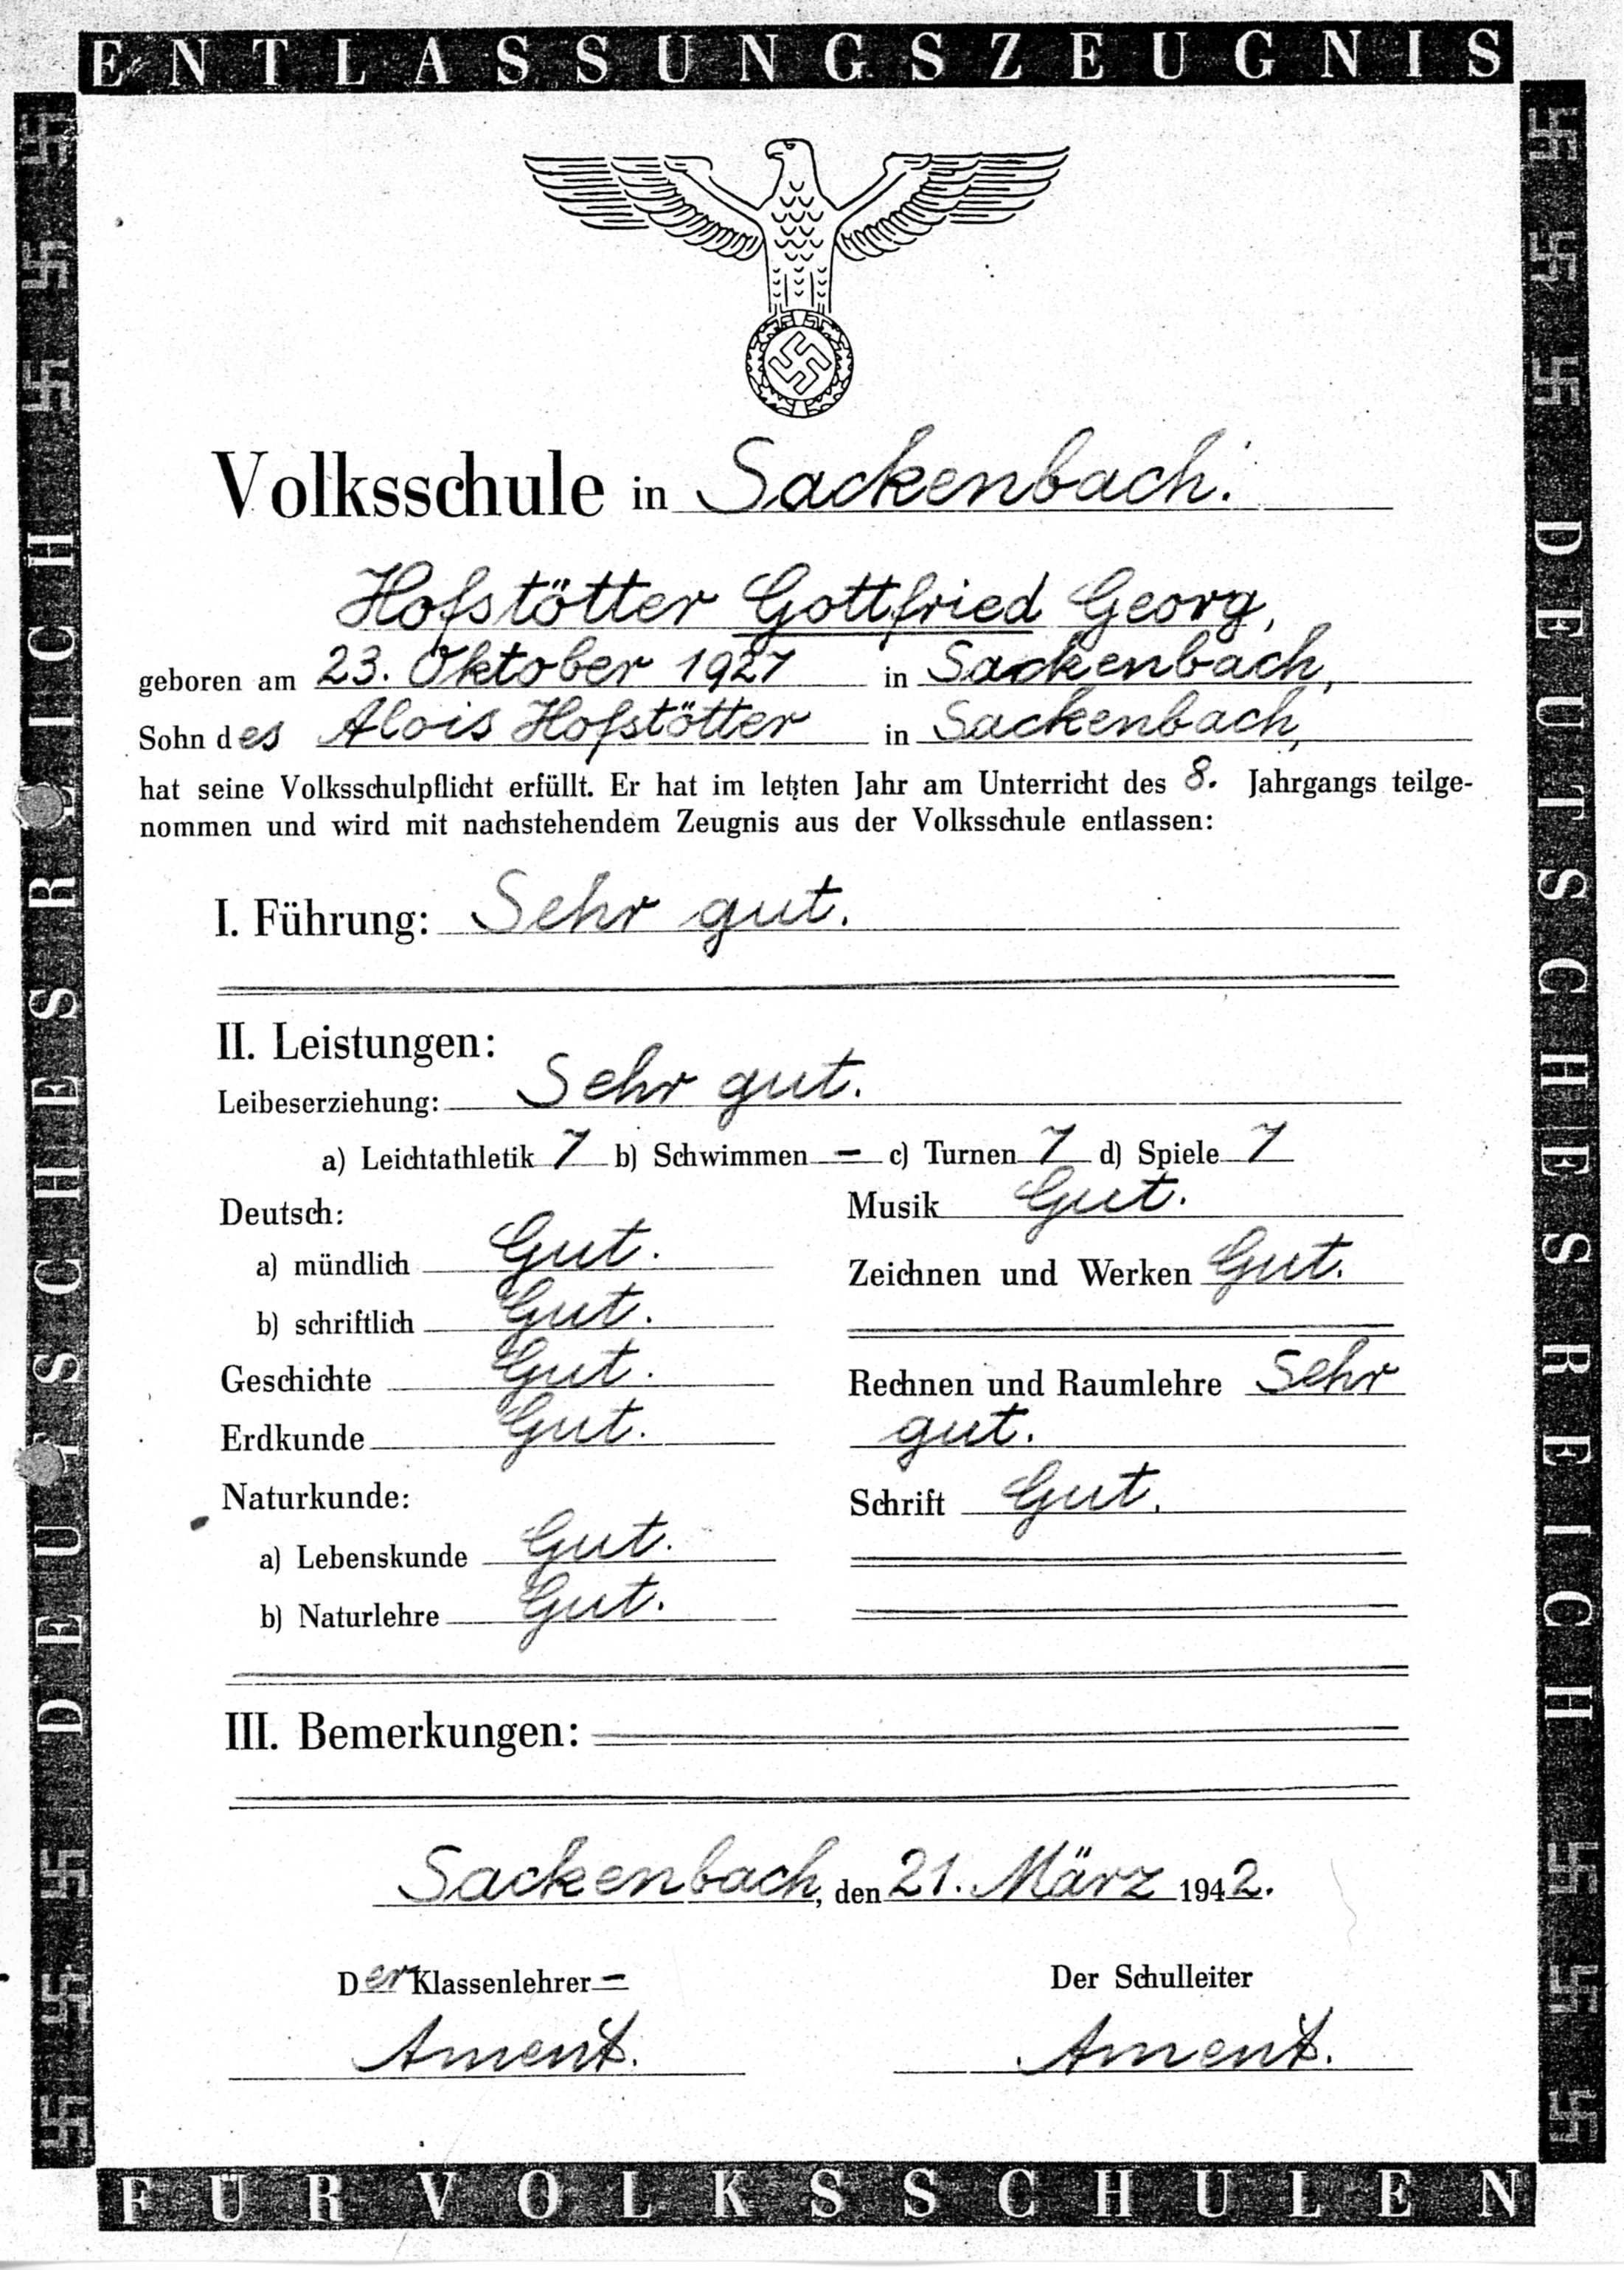 ENTLASSUNGSZEUGNIS
DEUTSCHES REICH
DEUTSCHES REICH
Volksschule in Sackenbach.
Hofstötter Gottfried Georg,
geboren am 23. Oktober 1927 in Sackenbach,
Sohn des Alois Hofstötter in Sackenbach,
hat seine Volksschulpflicht erfüllt. Er hat im letzten Jahr am Unterricht des 8. Jahrgangs teilge-
nommen und wird mit nachstehendem Zeugnis aus der Volksschule entlassen:
I. Führung: Sehr gut.
II. Leistungen:
Leibeserziehung: Sehr gut.
a) Leichtathletik 7 b) Schwimmen – c) Turnen 7 d) Spiele 7
Deutsch:
a) mündlich Gut.
b) schriftlich Gut.
Geschichte Gut.
Erdkunde Gut.
Naturkunde:
a) Lebenskunde Gut.
b) Naturlehre Gut.
Musik Gut.
Zeichnen und Werken Gut.
Rechnen und Raumlehre Sehr
gut.
Schrift Gut.
III. Bemerkungen:
Sackenbach, den 21. März 1942.
Der Klassenlehrer
Ament.
Der Schulleiter
Ament.
FÜR VOLKSSCHULEN